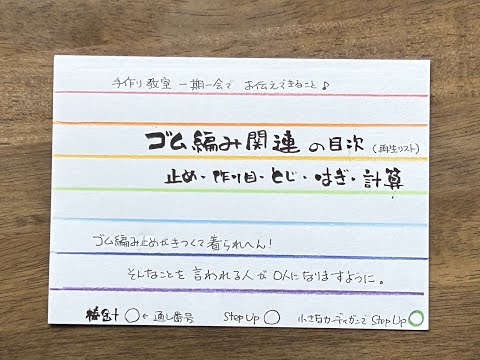 手作り教室 一期一会で お伝えできること♪
ゴム編み関連 の目次 (再生リスト)
止め・作り目・とじ・はぎ・計算
ゴム編み止めがきつくて着られへん!
そんなことを 言われる人が 0人になりますように。
棒針 ○ ← 通し番号 Step Up ○ 小さなカーディガンで Step Up ○